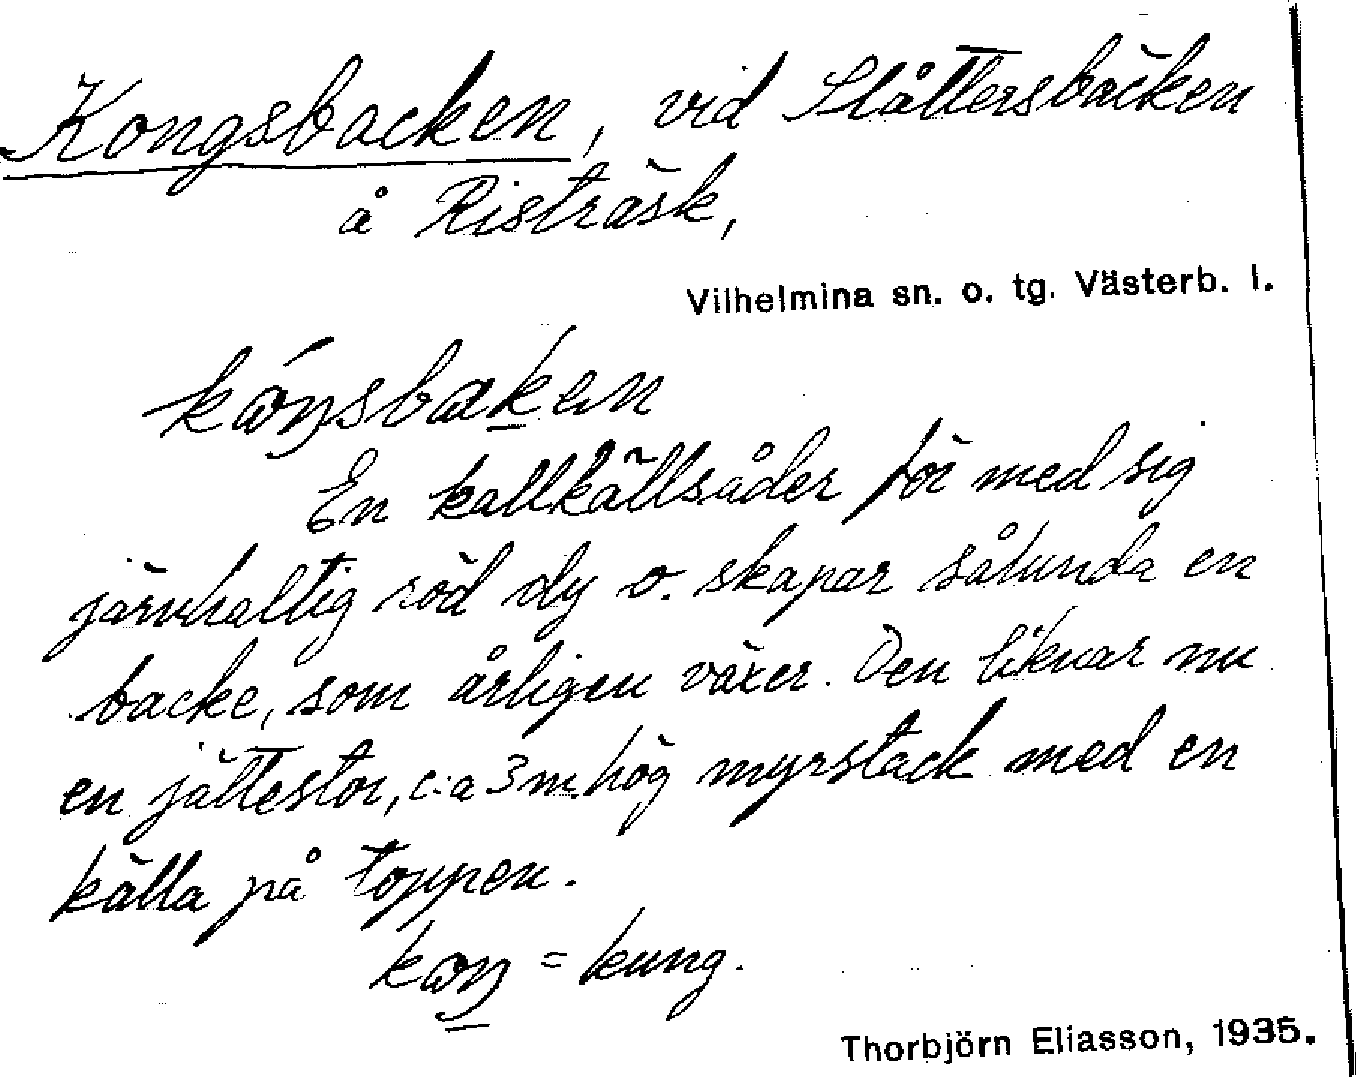 Kongsbacken, vid Slåttersbäcken
å Risträsk,
Vilhelmina sn. o. tg. Västerb. l.
kåŋsbaken
En kallkällsåder för med sig
järnhaltig röd dy o. skapar sålunda en
backe, som årligen växer. Den liknar nu
en jättestor, c:a 3 m. hög myrstack med en
källa på toppen.
= kung.
Thorbjörn Eliasson, 1935.